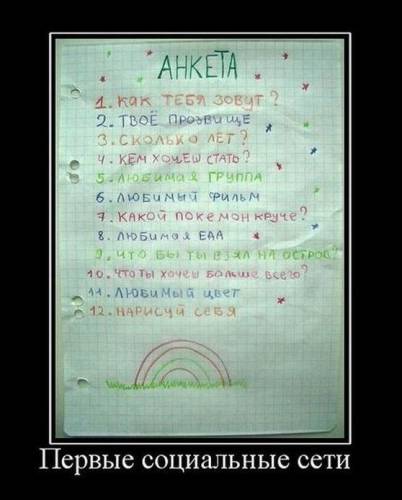 АНКЕТА
1. КАК ТЕБЯ ЗОВУТ?
2. ТВОЁ ПРОЗВИЩЕ
3. СКОЛЬКО ЛЕТ?
4. КЕМ ХОЧЕШ СТАТЬ?
5. ЛЮБИМАЯ ГРУППА
6. ЛЮБИМЫЙ ФИЛЬМ
7. КАКОЙ ПОКЕМОН КРУЧЕ?
8. ЛЮБИМАЯ ЕДА
9. ЧТО БЫ ТЫ ВЗЯЛ НА ОСТРОВ?
10. ЧТО ТЫ ХОЧЕШ БОЛЬШЕ ВСЕГО?
11. ЛЮБИМЫЙ ЦВЕТ
12. НАРИСУЙ СЕБЯ
Первые социальные сети